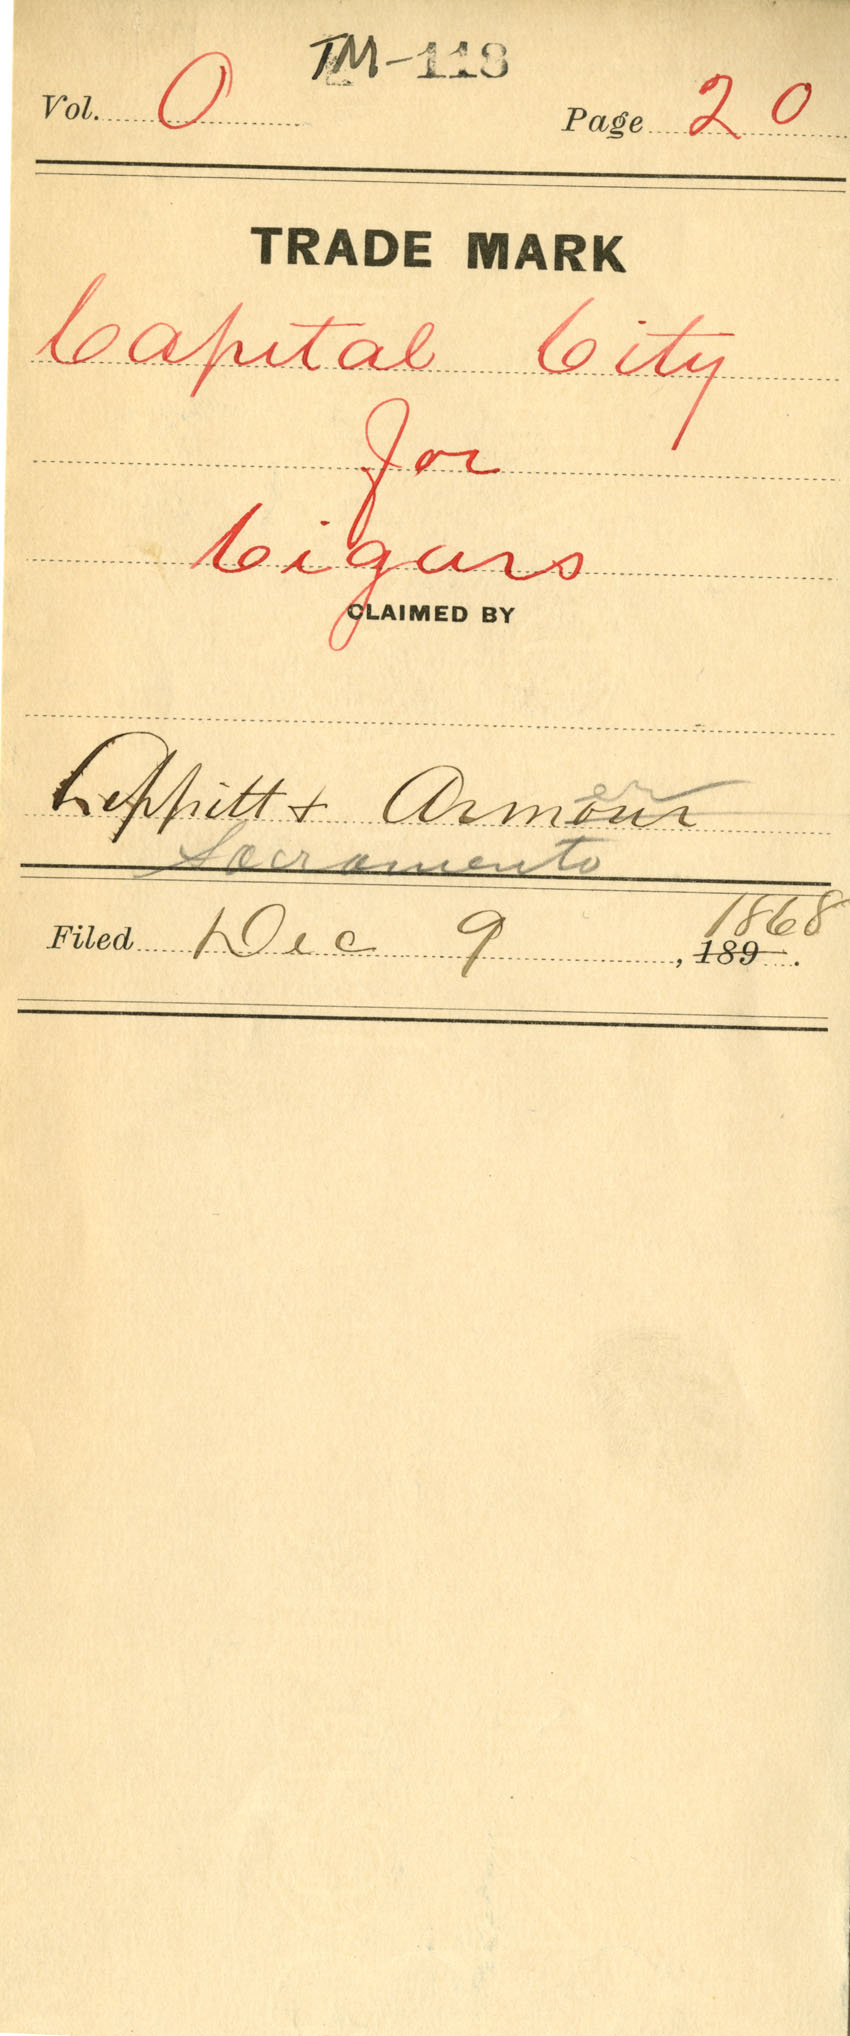 TM-118
Vol. 0 Page 20
TRADE MARK
Capital City
for
Cigars
CLAIMED BY
er
& Armour
Sacramento
1868
Filed Dec 9, 189 .